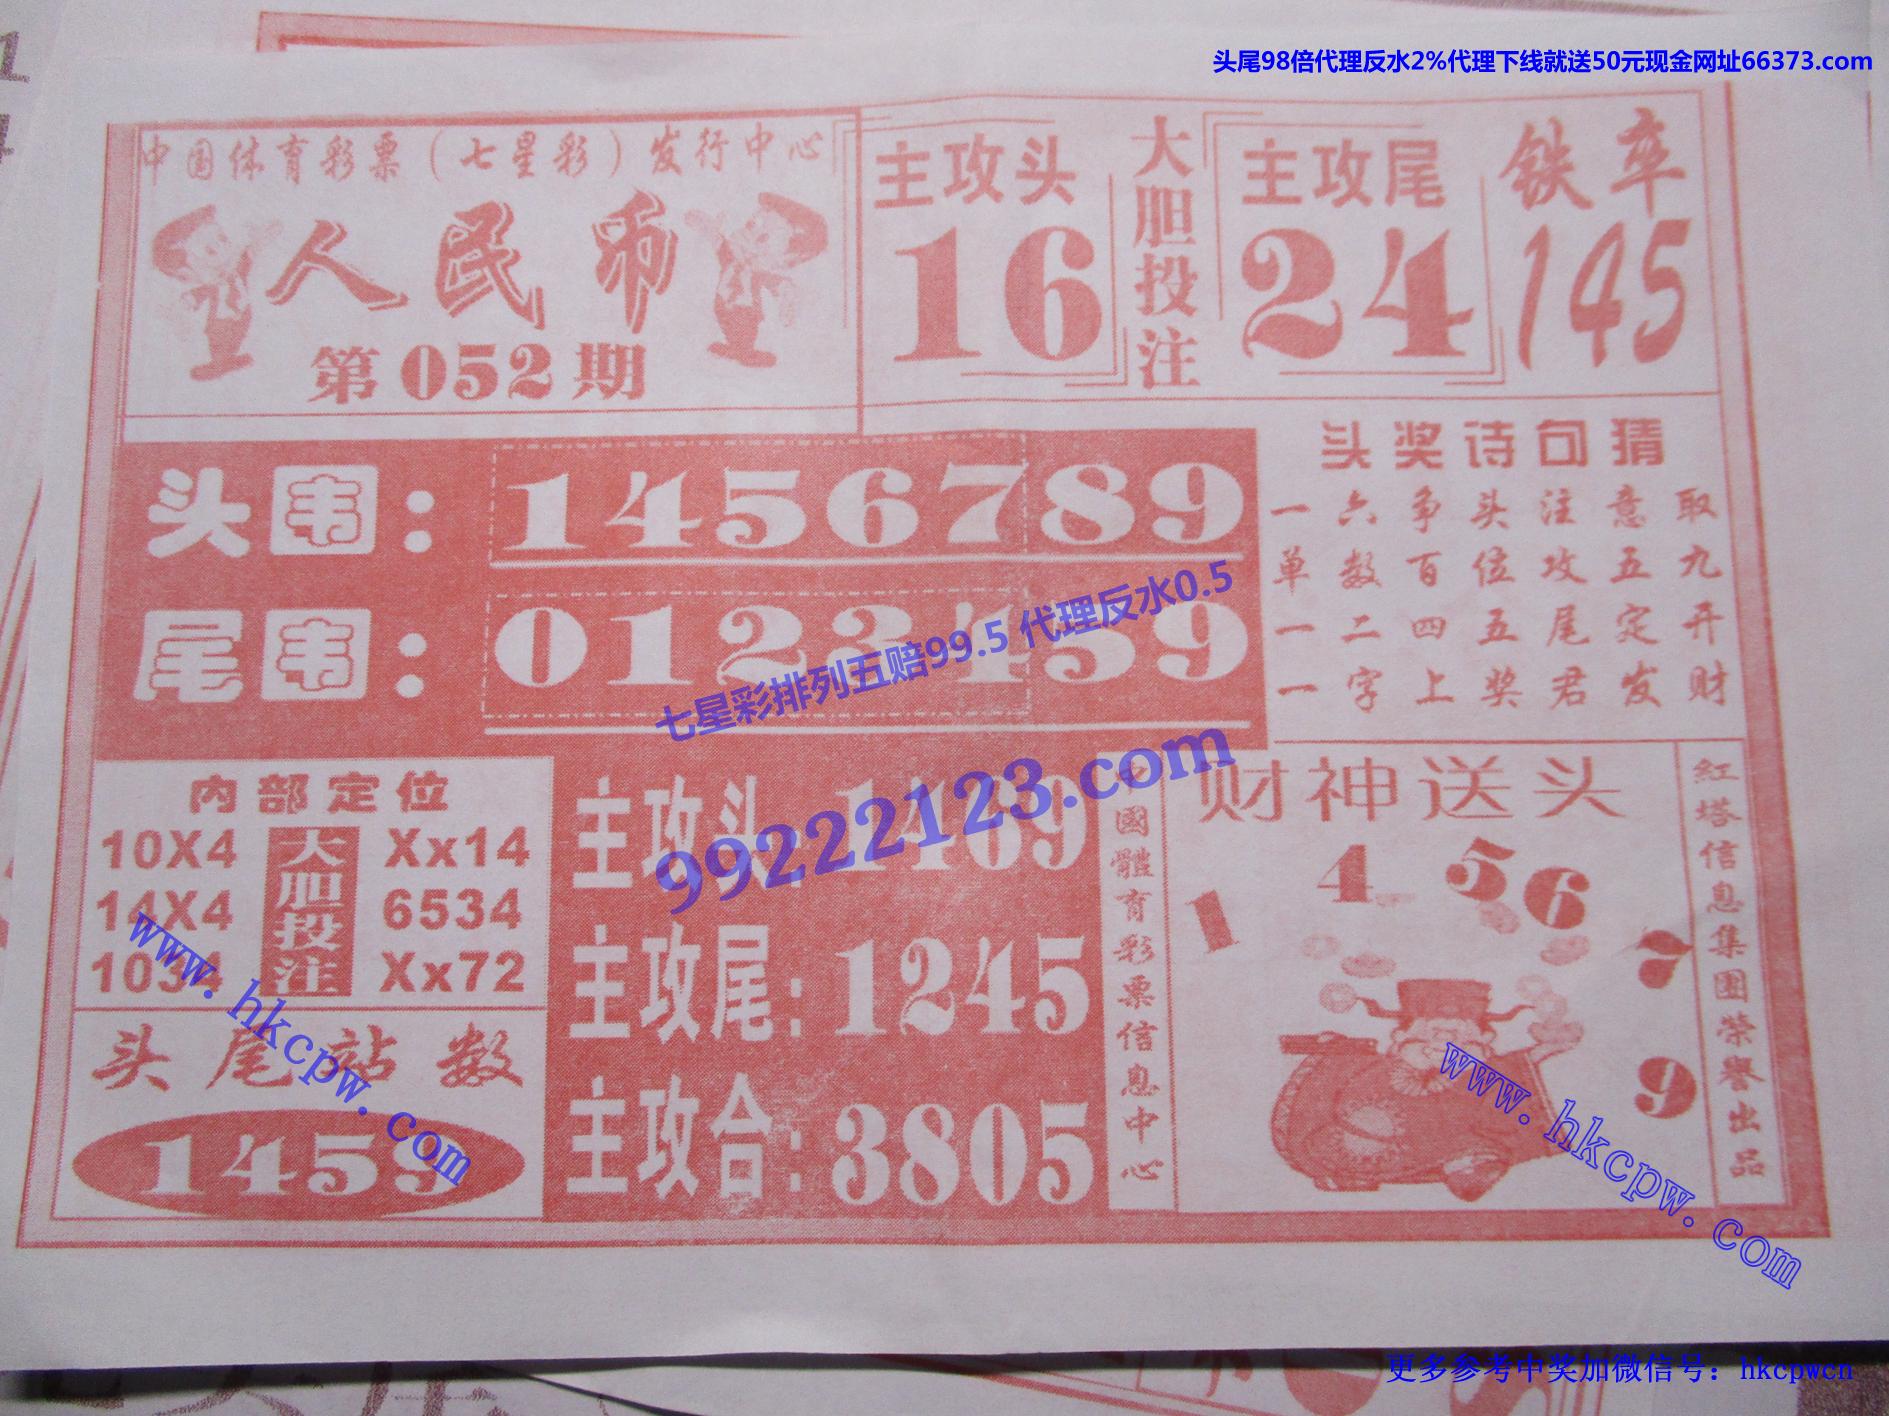 头尾98倍代理反水2%代理下线就送50元现金网址66373.com
中国体育彩票(七星彩)发行中心
人民币
第052期
主攻头
16
大胆投注
主攻尾
24
铁卒
145
头韦:1456789
尾韦:0123459
头奖诗句猜
一六争头注意取
单数百位攻五九
一二四五尾定开
一字上奖君发财
七星彩排列五赔99.5 代理反水0.5
99222123.com
内部定位
10X4
14X4
1034
大胆投注
Xx14
6534
Xx72
头尾站数
1459
主攻头:1469
主攻尾:1245
主攻合:3805
中國體育彩票信息中心
财神送头
1 4 5 6 7 9
紅塔信息集團榮譽出品
www.hkcpw.com
www.hkcpw.com
更多参考中奖加微信号:hkcpwcn